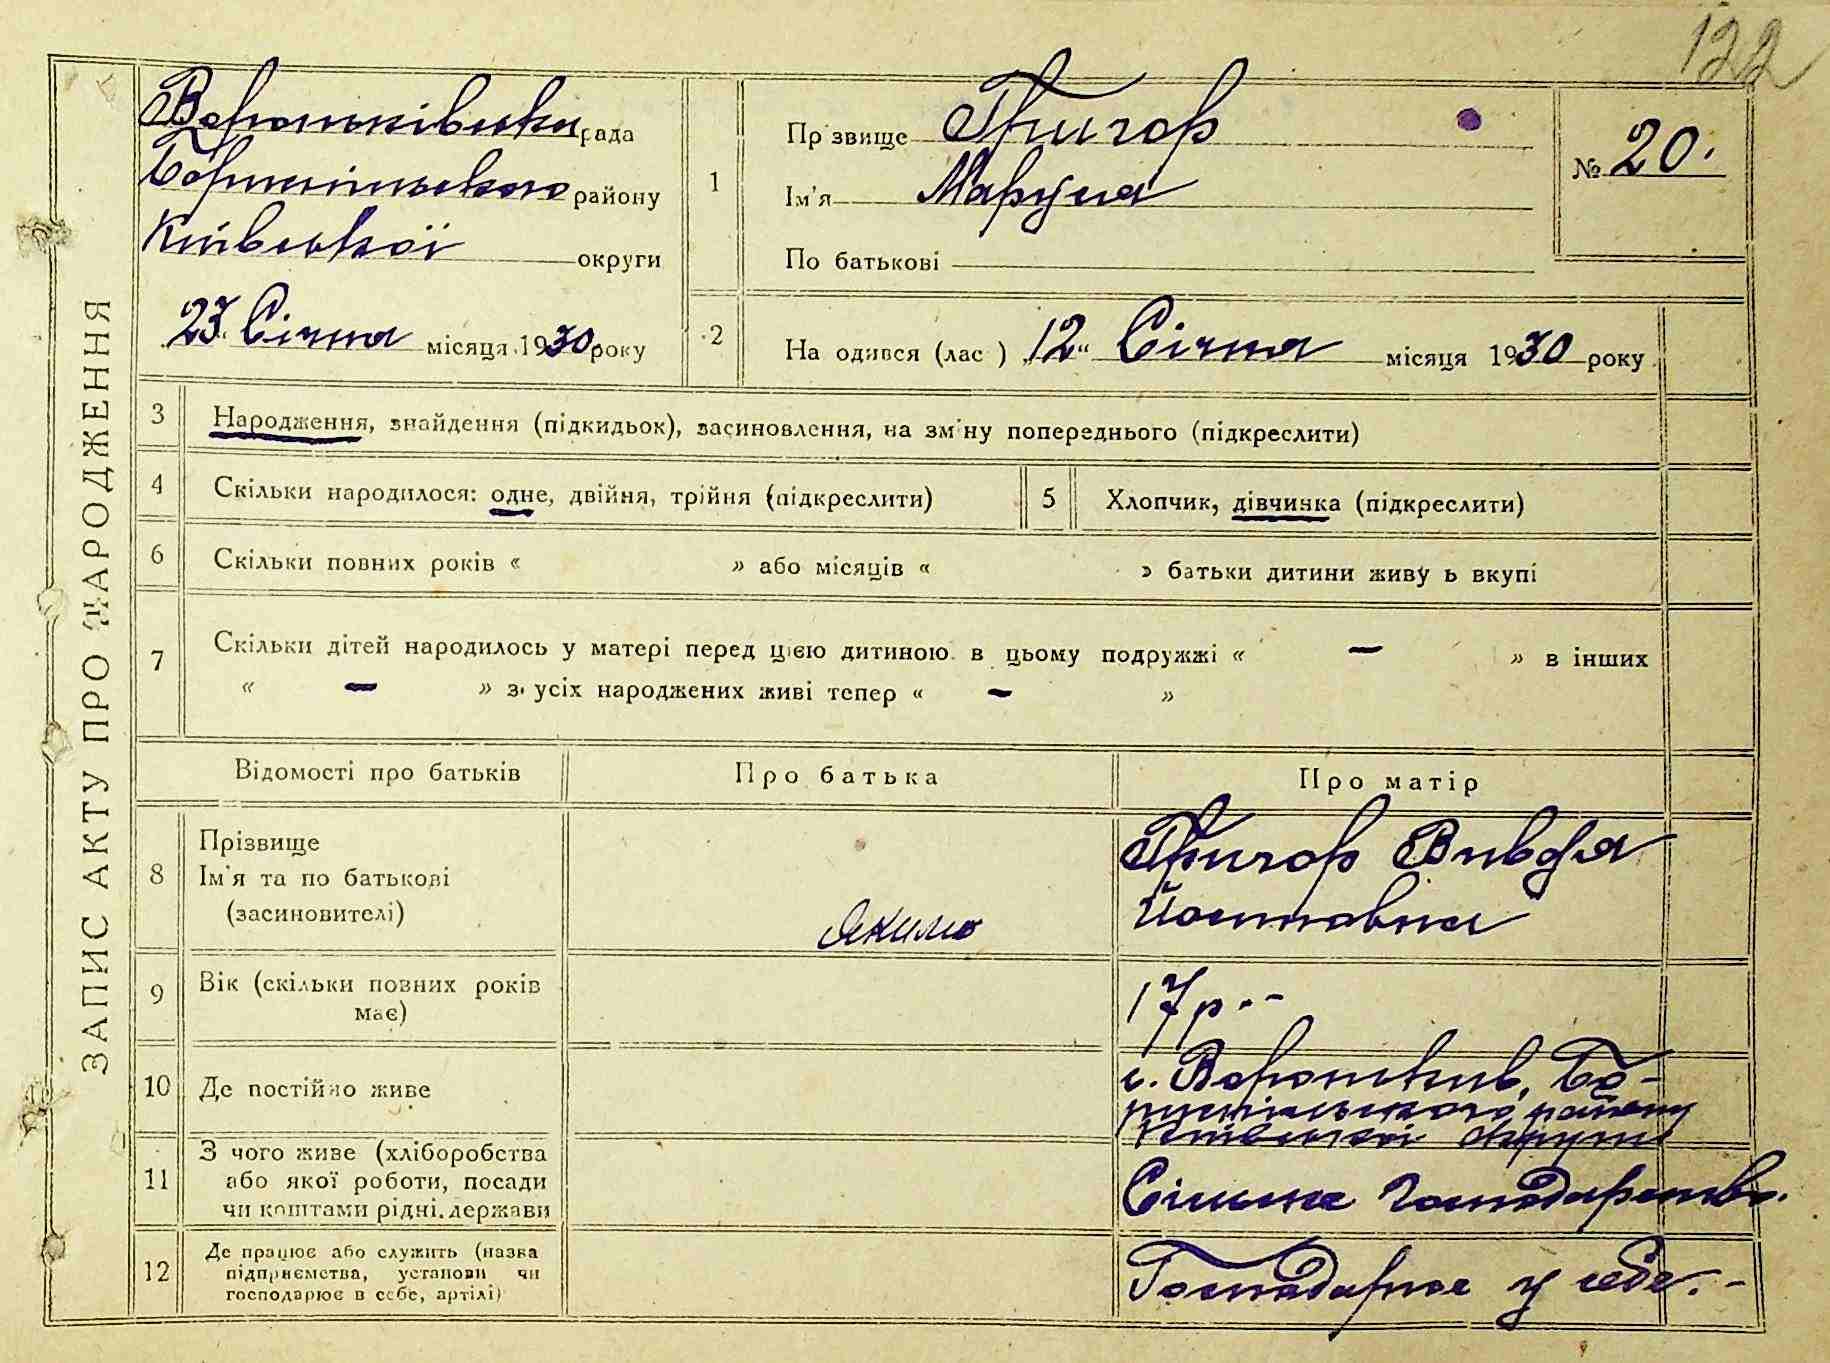 122
ЗАПИС АКТУ ПРО НАРОДЖЕННЯ
Вороньківська рада
Бориспільського району
Київської округи
23 Січня місяця 1930 року
1
Прізвище Григор
Ім'я Маруся
По батькові
№ 20.
2
На одився (лас ) „12" Січня місяця 1930 року
3
Народження, знайдення (підкидьок), засиновлення, на зміну попереднього (підкреслити)
4
Скільки народилося: одне, двійня, трійня (підкреслити)
5
Хлопчик, дівчинка (підкреслити)
6
Скільки повних років « » або місяців « » батьки дитини живу ь вкупі
7
Скільки дітей народилось у матері перед цією дитиною в цьому подружжі « — » в інших
« — » з усіх народжених живі тепер « — »
Відомості про батьків
Про батька
Про матір
8
Прізвище
Ім'я та по батькові
(засиновителі)
Яким
Григор Вивдя
9
Вік (скільки повних років
має)
17 р. -
10
Де постійно живе
с. Вороньків, Бо-
риспільського району
Київської округи
11
З чого живе (хліборобства
або якої роботи, посади
чи коштами рідні, держави
Сільське господарство.
12
Де працює або служить (назва
підприємства, установи чи
господарює в себе, артілі)
Господарює у себе. -